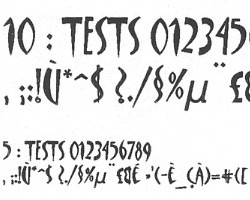 10 : TESTS 012345
, ;:!Ù*^$ ?./§%µ ¨ £
5 : TESTS 0123456789
, ;:!Ù*^$ ?./§%µ ¨ £&É »'(-È_ÇÀ)=#([